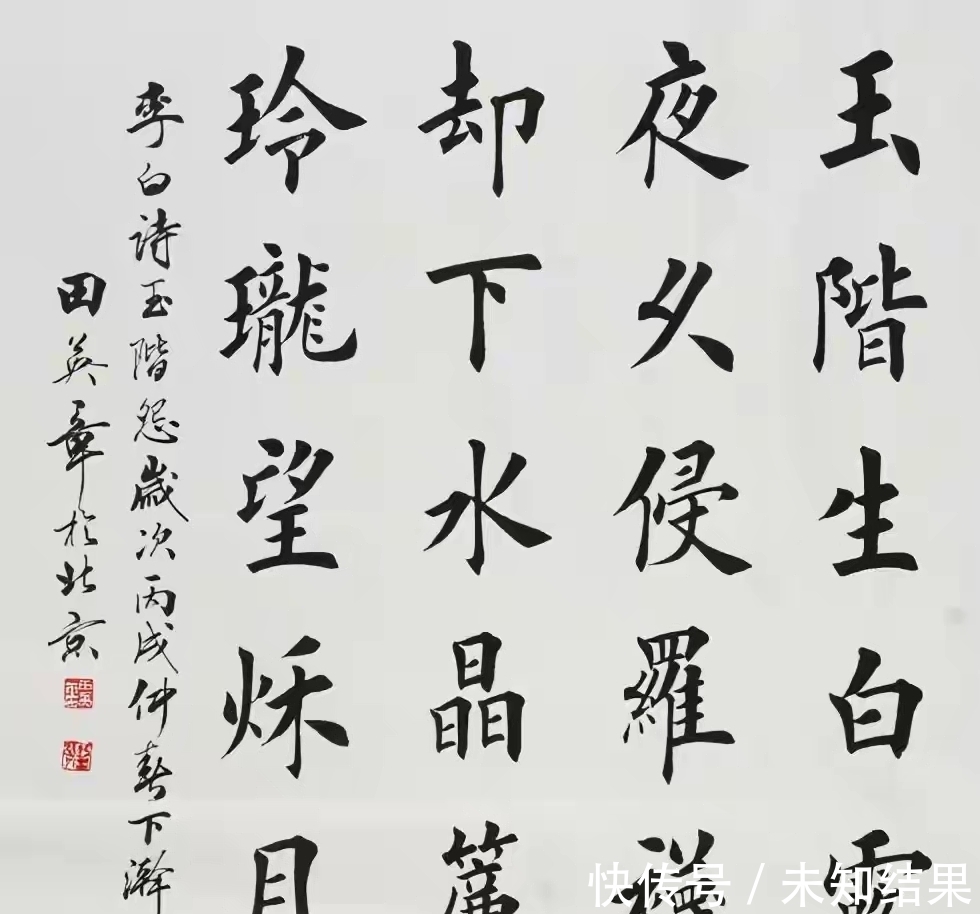 玉階生白露
夜久侵羅襪
却下水晶簾
玲瓏望秌月
李白詩玉階怨歲次丙戌仲春下澣
田英章於北京
快传号 / 未知结果